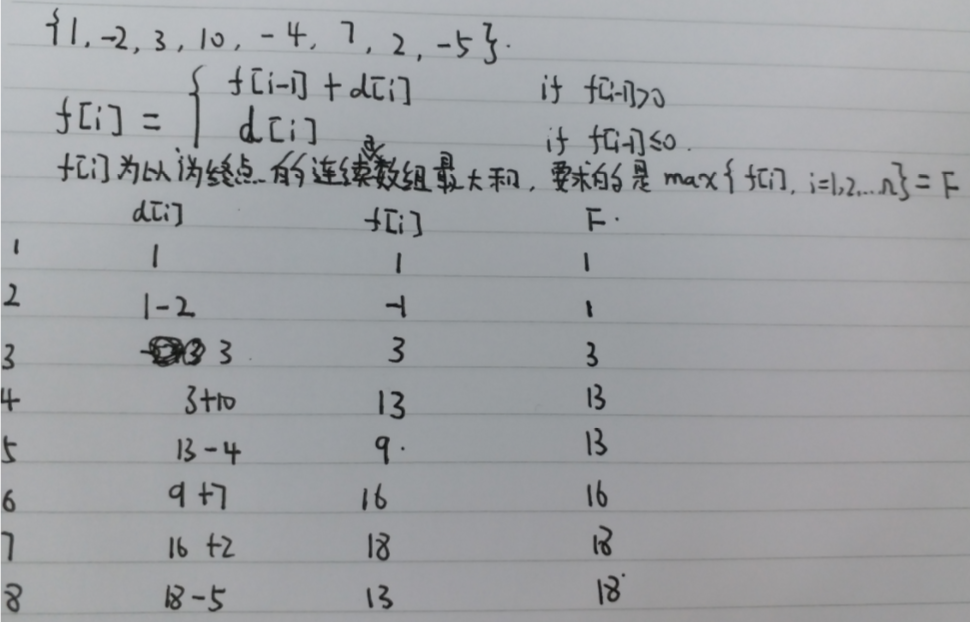 {1, -2, 3, 10, -4, 7, 2, -5}.
f[i] = { f[i-1] + d[i] if f[i-1]>0
d[i] if f[i-1]≤0.
f[i]为以i为终点的连续数组最大和, 要求的是 max{f[i], i=1,2,...n} = F
d[i] f[i] F.
1 1 1 1
2 1-2 -1 1
3 3 3 3
4 3+10 13 13
5 13-4 9. 13
6 9+7 16 16
7 16+2 18 18
8 18-5 13 18